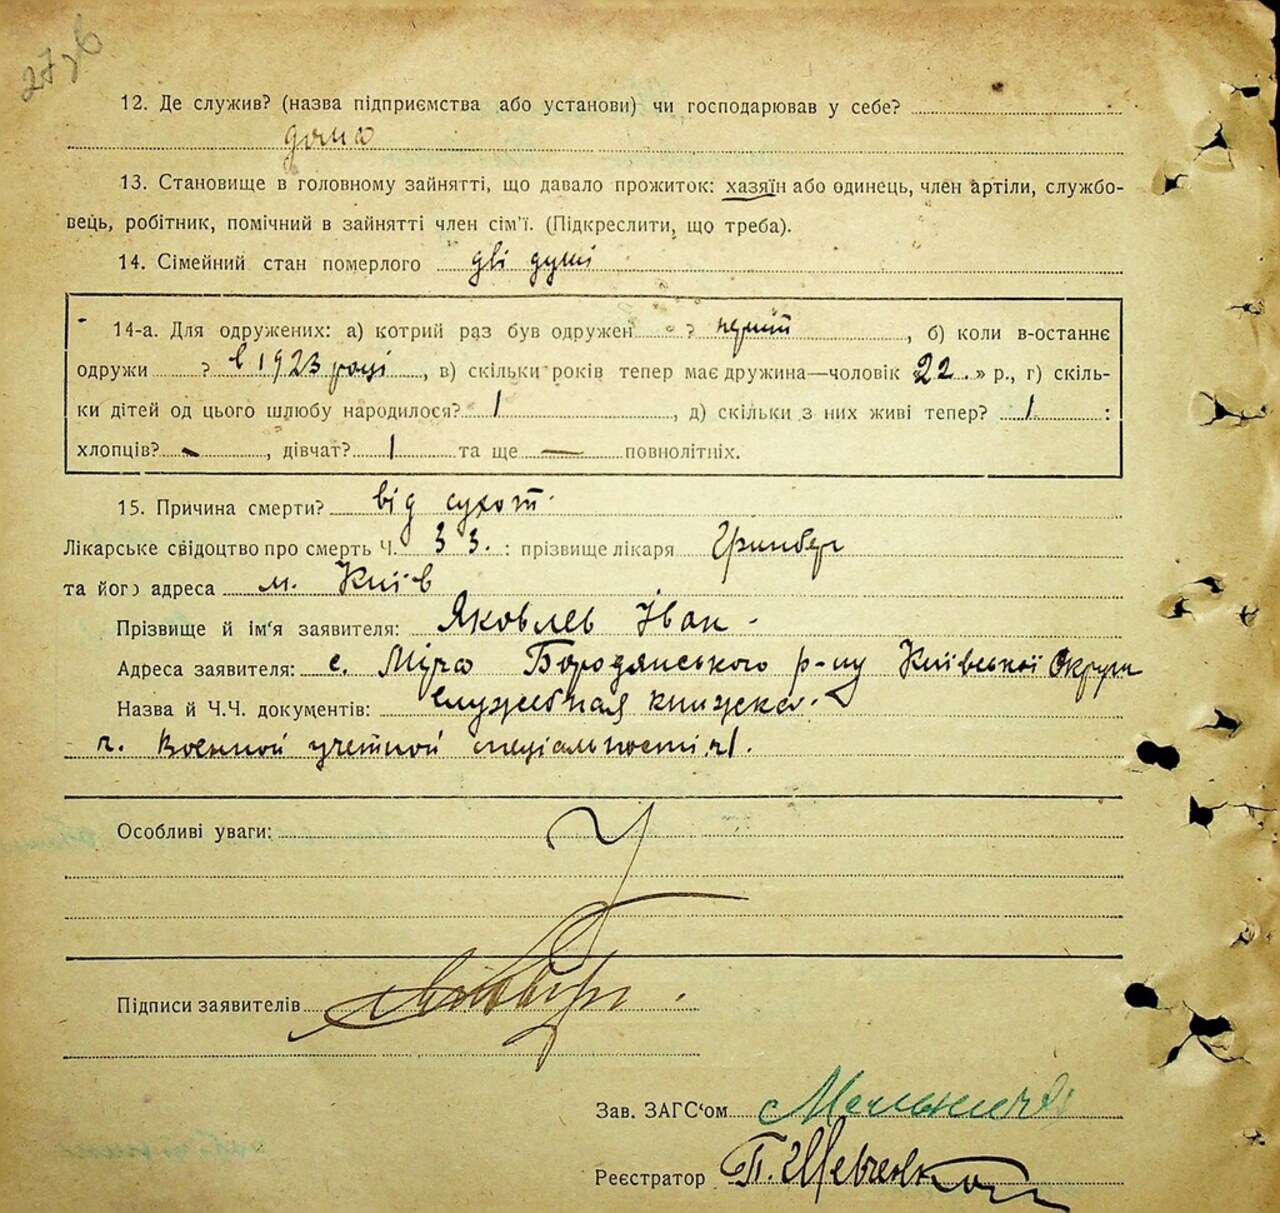 27зв
12. Де служив? (назва підприємства або установи) чи господарював у себе?
дома
13. Становище в головному зайнятті, що давало прожиток: хазяїн або одинець, член артіли, службо-
вець, робітник, помічний в зайнятті член сім'ї. (Підкреслити, що треба).
14. Сімейний стан померлого дві душі
14-а. Для одружених: а) котрий раз був одружен ? перший, б) коли в-останнє
одружи ? в 1923 році, в) скільки років тепер має дружина—чоловік 22. » р., г) скіль-
ки дітей од цього шлюбу народилося? 1, д) скільки з них живі тепер? 1 :
хлопців? -, дівчат? 1 та ще — повнолітніх.
15. Причина смерти? від сухот.
Лікарське свідоцтво про смерть Ч. 33. : прізвище лікаря Грінберг
та його адреса м. Київ
Прізвище й ім'я заявителя: Яковлев Іван -
Адреса заявителя: с. Міра Бородянського р-ну Київської Округи
Назва й Ч.Ч. документів: служебная книжка.
ч. военной учетной спеціальности ч1.
Особливі уваги:
Підписи заявителів
Зав. ЗАГС'ом
Реєстратор П. Шевченко